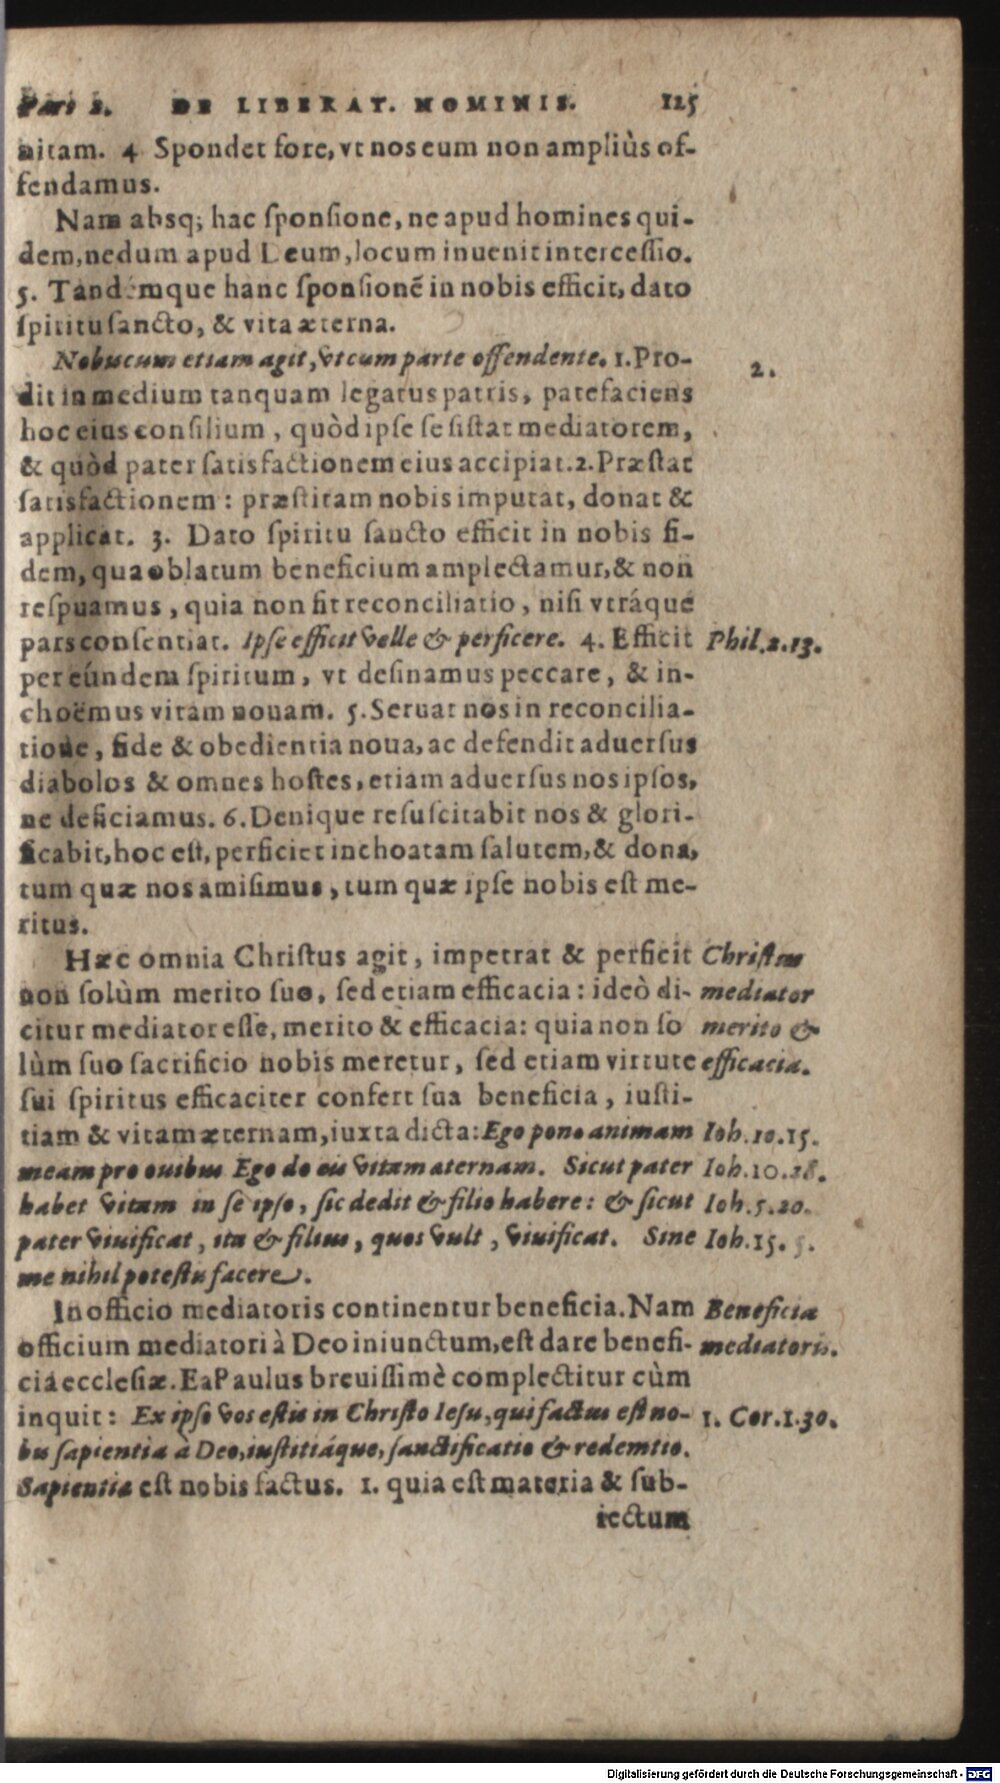 Pars 2. DE LIBERAT. HOMINIS. 125
nitam. 4 Spondet fore, vt nos eum non ampliùs of-
fendamus.
Nam absq; hac sponsione, ne apud homines qui-
dem, nedum apud Deum, locum inuenit intercessio.
5. Tandémque hanc sponsionē in nobis efficit, dato
spiritu sancto, & vita æterna.
Nobiscum etiam agit, vt cum parte offendente. 1. Pro-
2.
dit in medium tanquam legatus patris, patefaciens
hoc eius consilium, quòd ipse se sistat mediatorem,
& quòd pater satisfactionem eius accipiat. 2. Præstat
satisfactionem: præstitam nobis imputat, donat &
applicat. 3. Dato spiritu sancto efficit in nobis fi-
dem, qua oblatum beneficium amplectamur, & non
respuamus, quia non fit reconciliatio, nisi vtráque
pars consentiat. Ipse efficit velle & perficere. 4. Efficit
Phil. 2.13.
per eúndem spiritum, vt desinamus peccare, & in-
choëmus vitam nouam. 5. Seruat nos in reconcilia-
tione, fide & obedientia noua, ac defendit aduersus
diabolos & omnes hostes, etiam aduersus nos ipsos,
ne deficiamus. 6. Denique resuscitabit nos & glori-
ficabit, hoc est, perficiet inchoatam salutem, & dona,
tum quæ nos amisimus, tum quæ ipse nobis est me-
ritus.
Hæc omnia Christus agit, impetrat & perficit
Christus
non solùm merito suo, sed etiam efficacia: ideò di-
mediator
citur mediator esse, merito & efficacia: quia non so
merito &
lùm suo sacrificio nobis meretur, sed etiam virtute
efficacia.
sui spiritus efficaciter confert sua beneficia, iusti-
tiam & vitam æternam, iuxta dicta: Ego pono animam
Ioh. 10.15.
meam pro ouibus Ego do eis vitam æternam. Sicut pater
Ioh. 10.28.
habet vitam in se ipso, sic dedit & filio habere: & sicut
Ioh. 5.20.
pater viuificat, ita & filius, quos vult, viuificat. Sine
Ioh. 15. 5.
me nihil potestis facere.
In officio mediatoris continentur beneficia. Nam
Beneficia
officium mediatori à Deo iniunctum, est dare benefi-
mediatoris.
cia ecclesiæ. Ea Paulus breuissimè complectitur cùm
inquit: Ex ipso vos estis in Christo Iesu, qui factus est no-
1. Cor. 1.30.
bis sapientia à Deo, iustitiáque, sanctificatio & redemtio.
Sapientia est nobis factus. 1. quia est materia & sub-
iectum
Digitalisierung gefördert durch die Deutsche Forschungsgemeinschaft - DFG